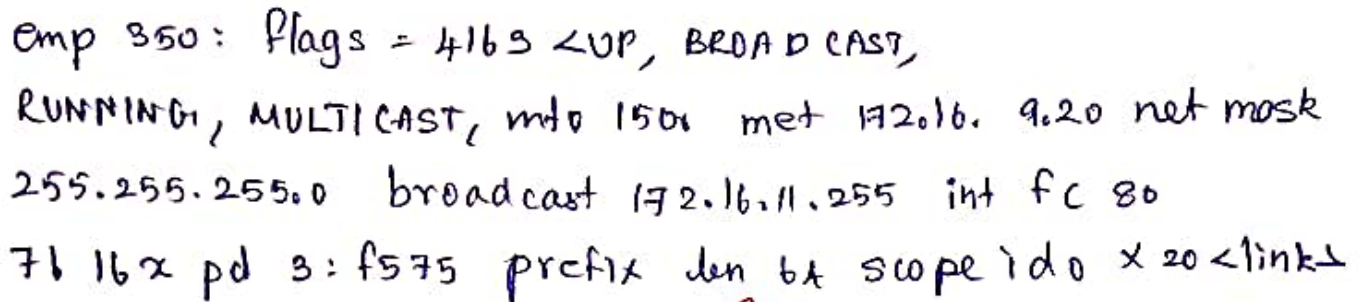 emp 350: flags = 4163 <UP, BROADCAST,
RUNNING, MULTICAST, mto 1500 met 172.16. 9.20 net mosk
255.255.255.0 broadcast 172.16.11.255 int fc 80
7b 16x pd 3: f575 prefix len 64 scope ido x 20 <link>